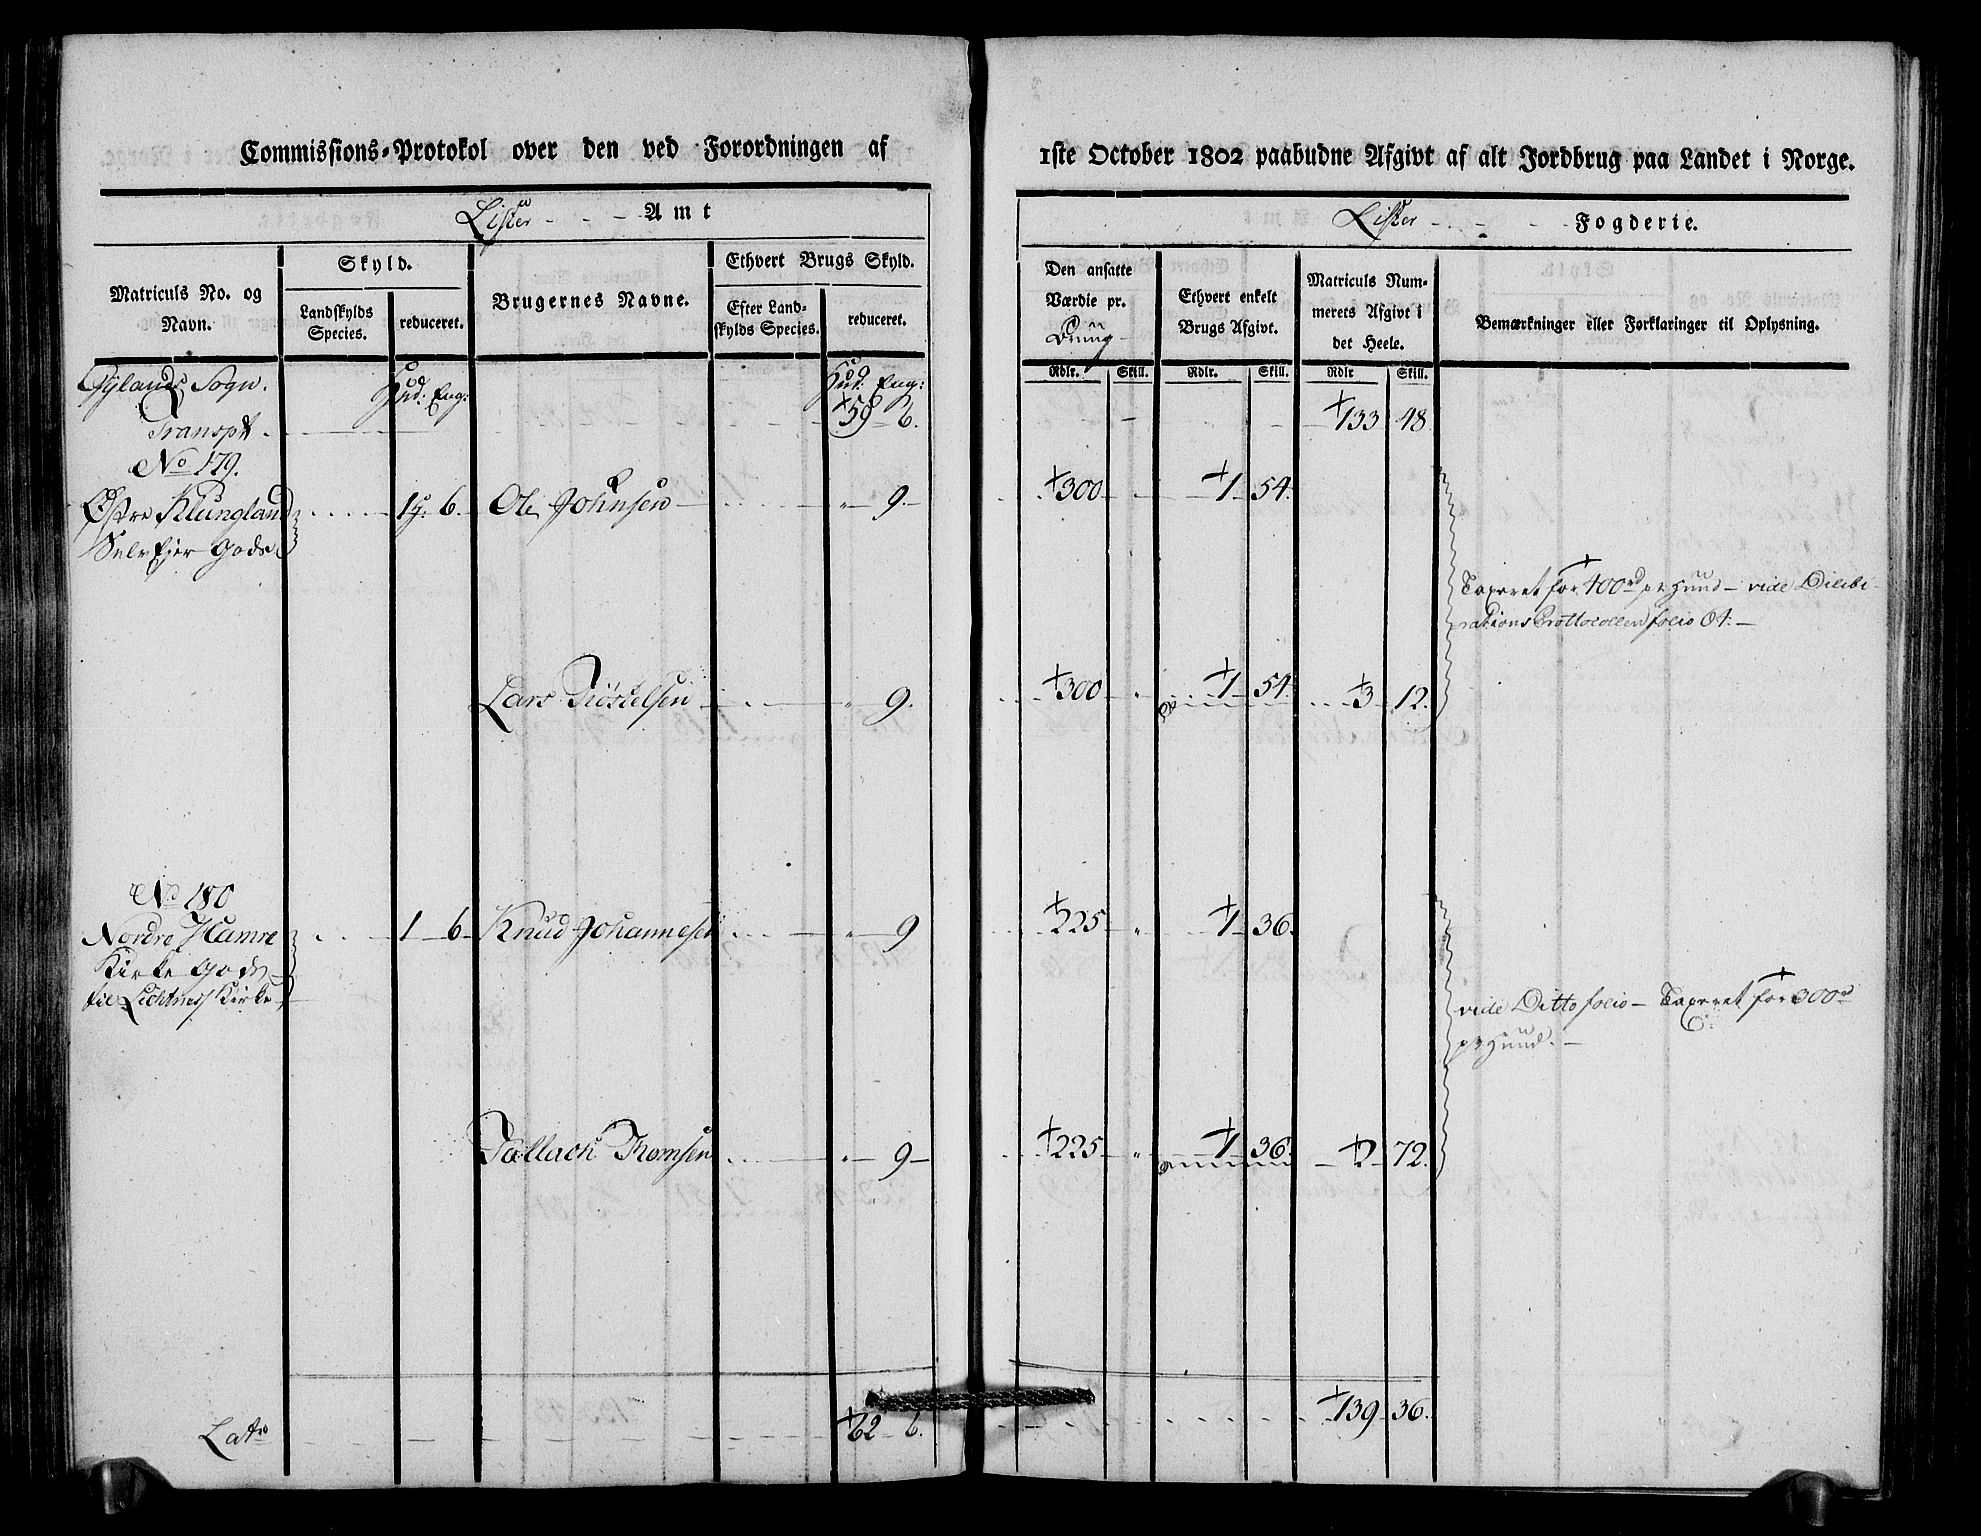 Commissions-Protokol over den ved Forordningen af
Lister - - - Amt
Matriculs No. og Navn.
Skyld.
Landskylds Species.
reduceret.
Brugernes Navne.
Ethvert Brugs Skyld.
Efter Landskylds Species.
reduceret.
Hud: Eng:
Hud: Eng:
Transpt. 59 6.
No 179.
Østre Klungland 1 6. Ole Johnsen " 9.
Selv Ejer Gods
Lars 9.
No 180
Nordre Hamre 1 6 Knud Johannesen " 9
Kirke Gods
til Kirke
Tallach Tromsen " 9
Lats 62 6.
1ste October 1802 paabudne Afgivt af alt Jordbrug paa Landet i Norge.
Lister - - - Fogderie.
Den ansatte Værdie pr.
Ethvert enkelt Brugs Afgivt.
Matriculs Nummerets Afgivt i det Heele.
Bemærkninger eller Forklaringer til Oplysning.
Rdlr. Skill. Rdlr. Skill. Rdlr Skill.
133 48.
300 1 54.
Taxeret for 400rd pr Huud - vide Delibe-
rations Prottocollen folio 64.
300 " 1 54. 3 12.
225 " 1 36.
vide Ditto folio - Taxeret for 300rd
pr Huud.
225 " 1 36. 2 72.
139 36.